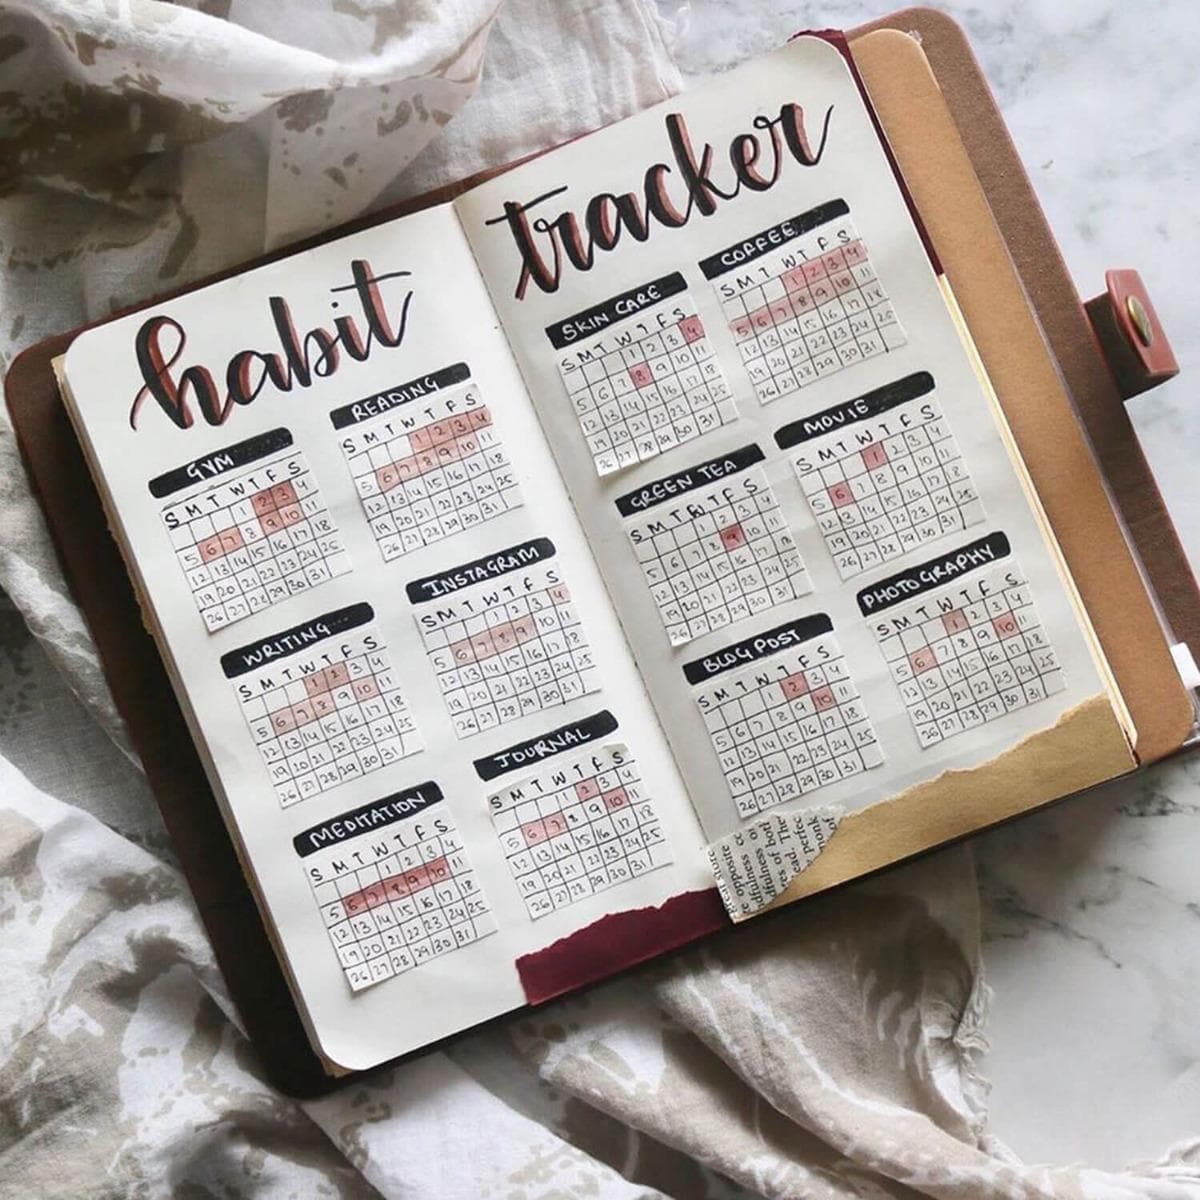 habit
tracker
GYM
S M T W T F S
1 2 3 4
5 6 7 8 9 10 11
12 13 14 15 16 17 18
19 20 21 22 23 24 25
26 27 28 29 30 31
READING
S M T W T F S
1 2 3 4
5 6 7 8 9 10 11
12 13 14 15 16 17 18
19 20 21 22 23 24 25
26 27 28 29 30 31
WRITING
S M T W T F S
1 2 3 4
5 6 7 8 9 10 11
12 13 14 15 16 17 18
19 20 21 22 23 24 25
26 27 28 29 30 31
INSTAGRAM
S M T W T F S
1 2 3 4
5 6 7 8 9 10 11
12 13 14 15 16 17 18
19 20 21 22 23 24 25
26 27 28 29 30 31
MEDITATION
S M T W T F S
1 2 3 4
5 6 7 8 9 10 11
12 13 14 15 16 17 18
19 20 21 22 23 24 25
26 27 28 29 30 31
JOURNAL
S M T W T F S
1 2 3 4
5 6 7 8 9 10 11
12 13 14 15 16 17 18
19 20 21 22 23 24 25
26 27 28 29 30 31
SKIN CARE
S M T W T F S
1 2 3 4
5 6 7 8 9 10 11
12 13 14 15 16 17 18
19 20 21 22 23 24 25
26 27 28 29 30 31
COFFEE
S M T W T F S
1 2 3 4
5 6 7 8 9 10 11
12 13 14 15 16 17 18
19 20 21 22 23 24 25
26 27 28 29 30 31
GREEN TEA
S M T W T F S
1 2 3 4
5 6 7 8 9 10 11
12 13 14 15 16 17 18
19 20 21 22 23 24 25
26 27 28 29 30 31
MOVIE
S M T W T F S
1 2 3 4
5 6 7 8 9 10 11
12 13 14 15 16 17 18
19 20 21 22 23 24 25
26 27 28 29 30 31
BLOG POST
S M T W T F S
1 2 3 4
5 6 7 8 9 10 11
12 13 14 15 16 17 18
19 20 21 22 23 24 25
26 27 28 29 30 31
PHOTOGRAPHY
S M T W T F S
1 2 3 4
5 6 7 8 9 10 11
12 13 14 15 16 17 18
19 20 21 22 23 24 25
26 27 28 29 30 31
great store
opposite
of bot
ead. The
perfe
monk
of